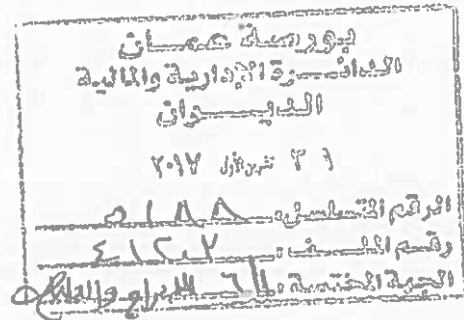 بورصة عمان
الدائرة الإدارية والمالية
الديوان
٣١ تموز ٢٠١٧
الرقم المتسلسل: ٥١٨٨
رقم الملف: ٤١٢٠٢
الجهة المختصة: الإدراج والعمليات